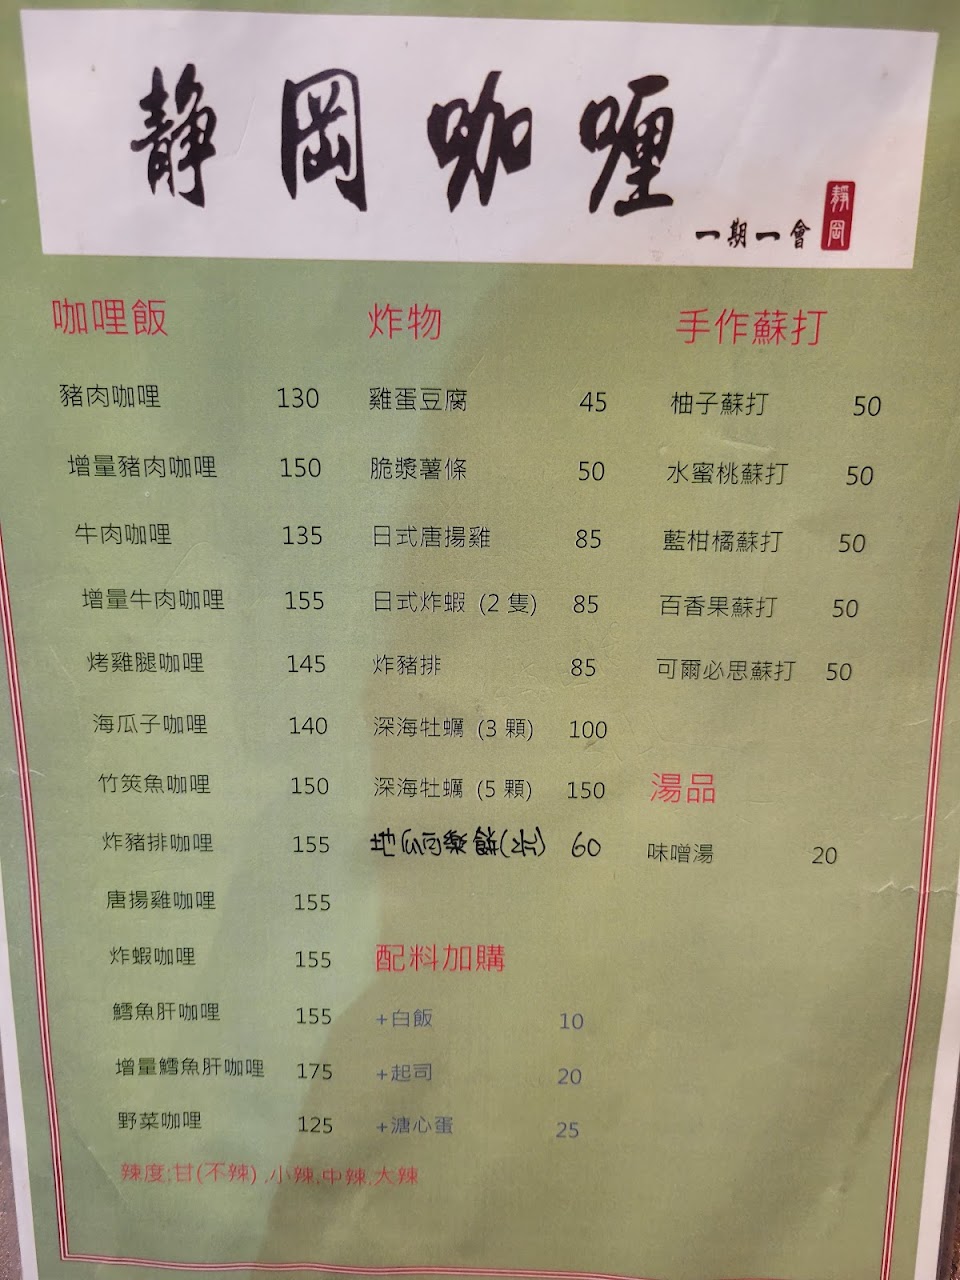 靜岡咖喱
一期一會
靜岡
咖哩飯
豬肉咖哩 130
增量豬肉咖哩 150
牛肉咖哩 135
增量牛肉咖哩 155
烤雞腿咖哩 145
海瓜子咖哩 140
竹筴魚咖哩 150
炸豬排咖哩 155
唐揚雞咖哩 155
炸蝦咖哩 155
鱈魚肝咖哩 155
增量鱈魚肝咖哩 175
野菜咖哩 125
辣度;甘(不辣) ,小辣,中辣,大辣
炸物
雞蛋豆腐 45
脆漿薯條 50
日式唐揚雞 85
日式炸蝦 (2 隻) 85
炸豬排 85
深海牡蠣 (3 顆) 100
深海牡蠣 (5 顆) 150
地瓜可樂餅 60
配料加購
+白飯 10
+起司 20
+溏心蛋 25
手作蘇打
柚子蘇打 50
水蜜桃蘇打 50
藍柑橘蘇打 50
百香果蘇打 50
可爾必思蘇打 50
湯品
味噌湯 20